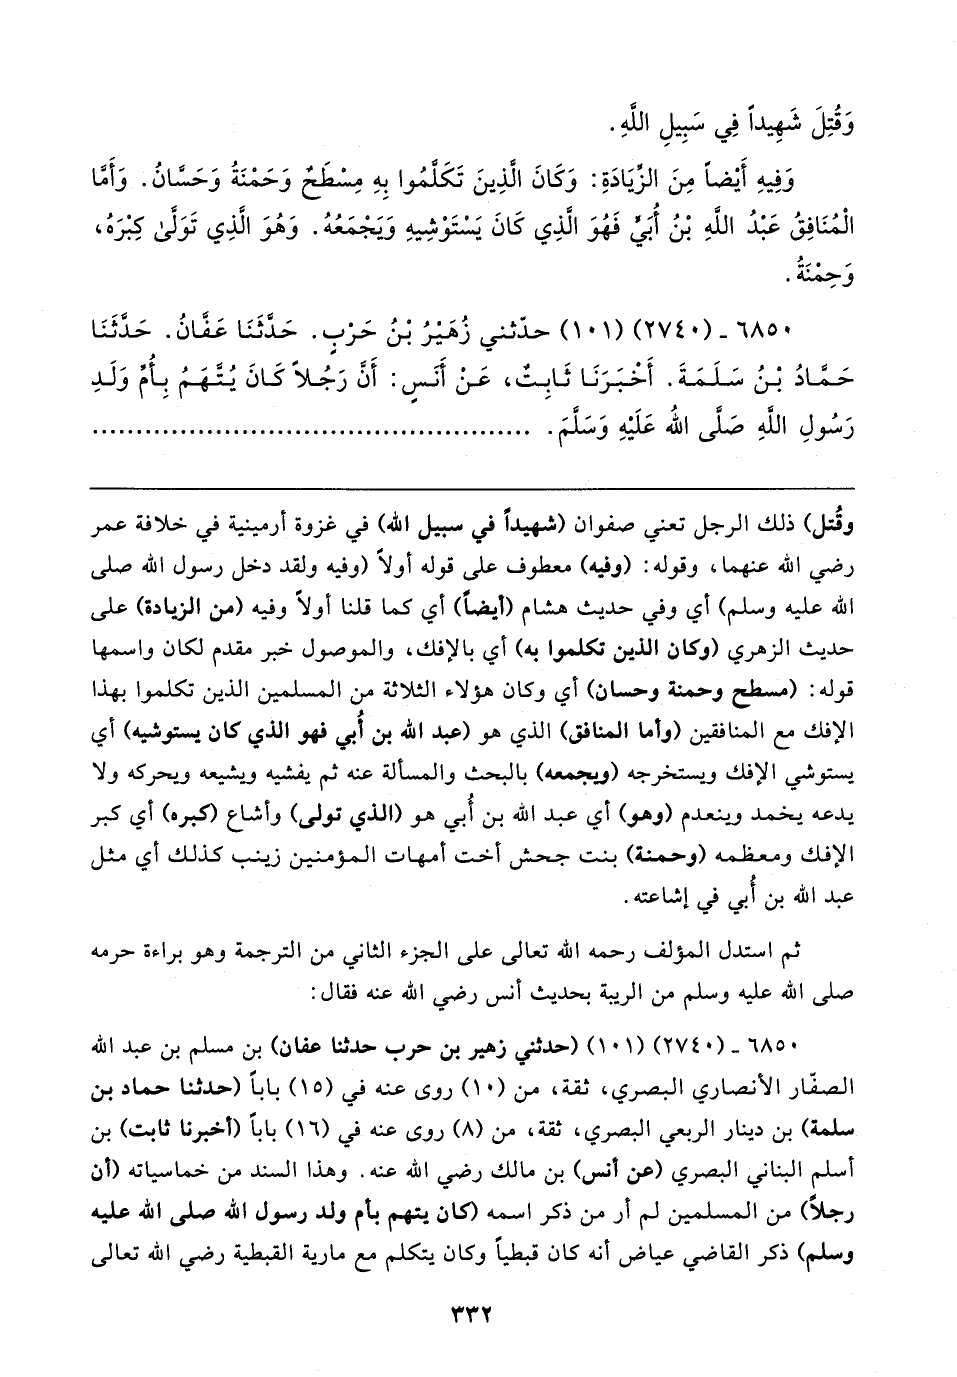 وَقُتِلَ شَهِيداً فِي سَبِيلِ اللَّهِ.
وَفِيهِ أَيْضاً مِنَ الزِّيَادَةِ: وَكَانَ الَّذِينَ تَكَلَّمُوا بِهِ مِسْطَحٌ وَحَمْنَةُ وَحَسَّانُ. وَأَمَّا
الْمُنَافِقُ عَبْدُ اللَّهِ بْنُ أُبَيٍّ فَهُوَ الَّذِي كَانَ يَسْتَوْشِيهِ وَيَجْمَعُهُ. وَهُوَ الَّذِي تَوَلَّىٰ كِبْرَهُ،
وَحِمْنَةُ.
٦٨٥٠ ـ (٢٧٤٠) (١٠١) حدّثني زُهَيْرُ بْنُ حَرْبٍ. حَدَّثَنَا عَفَّانُ. حَدَّثَنَا
حَمَّادُ بْنُ سَلَمَةَ. أَخْبَرَنَا ثَابِتٌ، عَنْ أَنَسٍ: أَنَّ رَجُلاً كَانَ يُتَّهَمُ بِأُمِّ وَلَدِ
رَسُولِ اللَّهِ صَلَّى اللهُ عَلَيْهِ وَسَلَّمَ. ..................................................
وقُتل) ذلك الرجل تعني صفوان (شهيداً في سبيل الله) في غزوة أرمينية في خلافة عمر
رضي الله عنهما، وقوله: (وفيه) معطوف على قوله أولاً (وفيه ولقد دخل رسول الله صلى
الله عليه وسلم) أي وفي حديث هشام (أيضاً) أي كما قلنا أولاً وفيه (من الزيادة) على
حديث الزهري (وكان الذين تكلموا به) أي بالإفك، والموصول خبر مقدم لكان واسمها
قوله: (مسطح وحمنة وحسان) أي وكان هؤلاء الثلاثة من المسلمين الذين تكلموا بهذا
الإفك مع المنافقين (وأما المنافق) الذي هو (عبد الله بن أُبي فهو الذي كان يستوشيه) أي
يستوشي الإفك ويستخرجه (ويجمعه) بالبحث والمسألة عنه ثم يفشيه ويشيعه ويحركه ولا
يدعه يخمد وينعدم (وهو) أي عبد الله بن أُبي هو (الذي تولى) وأشاع (كبره) أي كبر
الإفك ومعظمه (وحمنة) بنت جحش أخت أمهات المؤمنين زينب كذلك أي مثل
عبد الله بن أُبي في إشاعته.
ثم استدل المؤلف رحمه الله تعالى على الجزء الثاني من الترجمة وهو براءة حرمه
صلى الله عليه وسلم من الريبة بحديث أنس رضي الله عنه فقال:
٦٨٥٠ ـ (٢٧٤٠) (١٠١) (حدثني زهير بن حرب حدثنا عفان) بن مسلم بن عبد الله
الصفّار الأنصاري البصري، ثقة، من (١٠) روى عنه في (١٥) باباً (حدثنا حماد بن
سلمة) بن دينار الربعي البصري، ثقة، من (٨) روى عنه في (١٦) باباً (أخبرنا ثابت) بن
أسلم البناني البصري (عن أنس) بن مالك رضي الله عنه. وهذا السند من خماسياته (أن
رجلاً) من المسلمين لم أر من ذكر اسمه (كان يتهم بأم ولد رسول الله صلى الله عليه
وسلم) ذكر القاضي عياض أنه كان قبطياً وكان يتكلم مع مارية القبطية رضي الله تعالى
٣٣٢